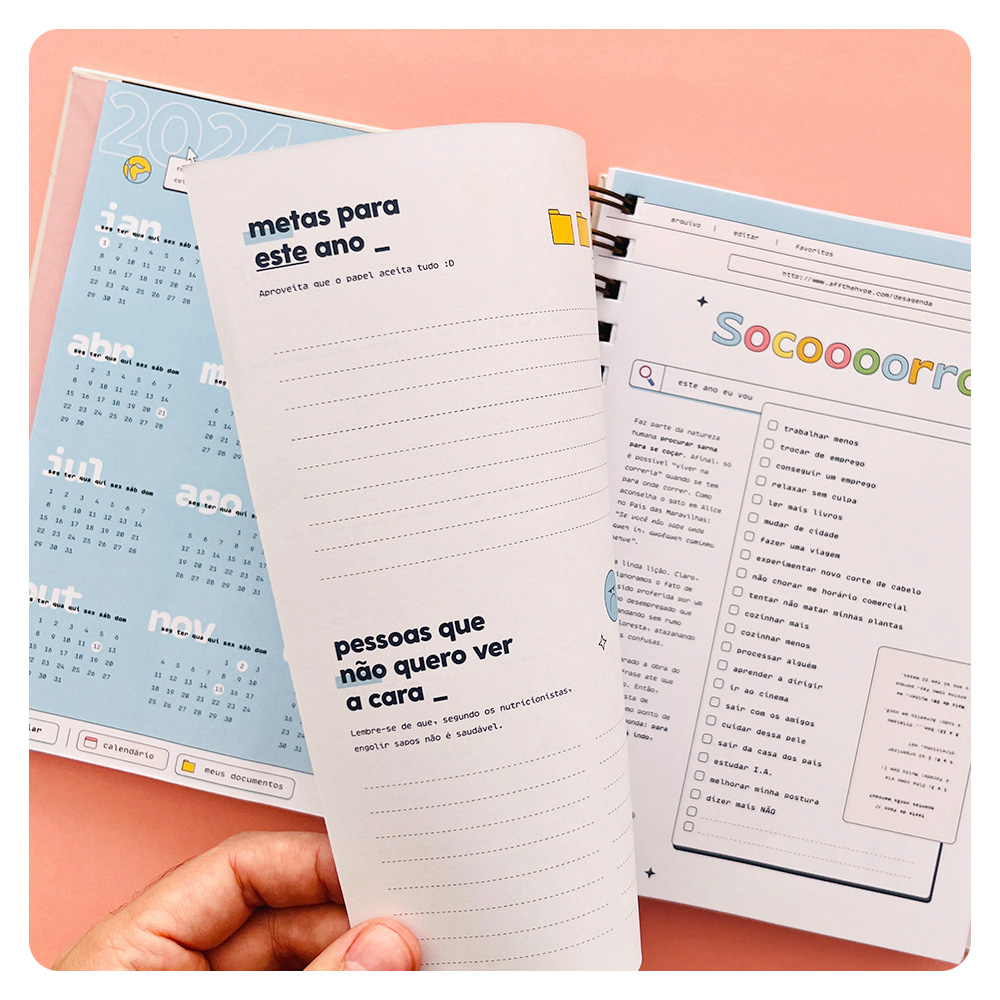 2024
jan
seg ter qua qui sex sáb
1 2 3 4 5 6
8 9 10 11 12 13
15 16 17 18 19 20
22 23 24 25 26 27
29 30 31
abr
seg ter qua qui sex sáb dom
1 2 3 4 5 6 7
8 9 10 11 12 13 14
15 16 17 18 19 20 21
22 23 24 25 26 27 28
29 30
jul
seg ter qua qui sex sáb dom
1 2 3 4 5 6 7
8 9 10 11 12 13 14
15 16 17 18 19 20 21
22 23 24 25 26 27 28
29 30 31
ago
seg ter qua qui sex
1 2
5 6 7 8 9
12 13 14 15 16
19 20 21 22 23
26 27 28 29 30
out
seg ter qua qui sex sáb dom
nov
seg ter qua qui sex sáb dom
1 2 3
4 5 6 7 8 9 10
11 12 13 14 15 16 17
18 19 20 21 22 23 24
25 26 27 28 29 30
calendário
meus documentos
metas para
este ano _
Aproveita que o papel aceita tudo :D
pessoas que
não quero ver
a cara _
Lembre-se de que, segundo os nutricionistas,
engolir sapos não é saudável.
arquivo | editar | favoritos
http://www.affthehype.com/desagenda
Socoooorro
este ano eu vou
Faz parte da natureza
humana procurar sarna
para se coçar. Afinal, só
é possível "viver na
correria" quando se tem
para onde correr. Como
aconselha o gato em Alice
no País das Maravilhas:
"Se você não sabe onde
quer ir, qualquer caminho
linda lição. Claro,
ignoramos o fato de
sido proferida por um
desempregado que
andando sem rumo
loresta, atazanando
confusas.
trabalhar menos
trocar de emprego
conseguir um emprego
relaxar sem culpa
ler mais livros
mudar de cidade
fazer uma viagem
experimentar novo corte de cabelo
não chorar me horário comercial
tentar não matar minhas plantas
cozinhar mais
cozinhar menos
processar alguém
aprender a dirigir
ir ao cinema
sair com os amigos
cuidar dessa pele
sair da casa dos pais
estudar I.A.
melhorar minha postura
dizer mais NÃO